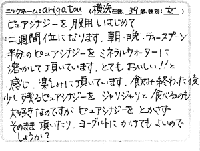 ニックネーム:arigatou 横浜 在住 34歳 様 性別:女
ピュアシナジーを服用しはじめて
二週間位になります。朝・晩、ティースプーン
半分のピュアシナジーをミネラルウォーターに
溶かして頂いています。とてもおいしい!と
感じ、楽しみに頂いています。飲み終わりに後
少し残るピュアシナジーをジャリジャリと食べるのも
大好きなのですがピュアシナジーをとかさず
そのまま頂いたり、ヨーグルトにかけてもよいので
しょうか?